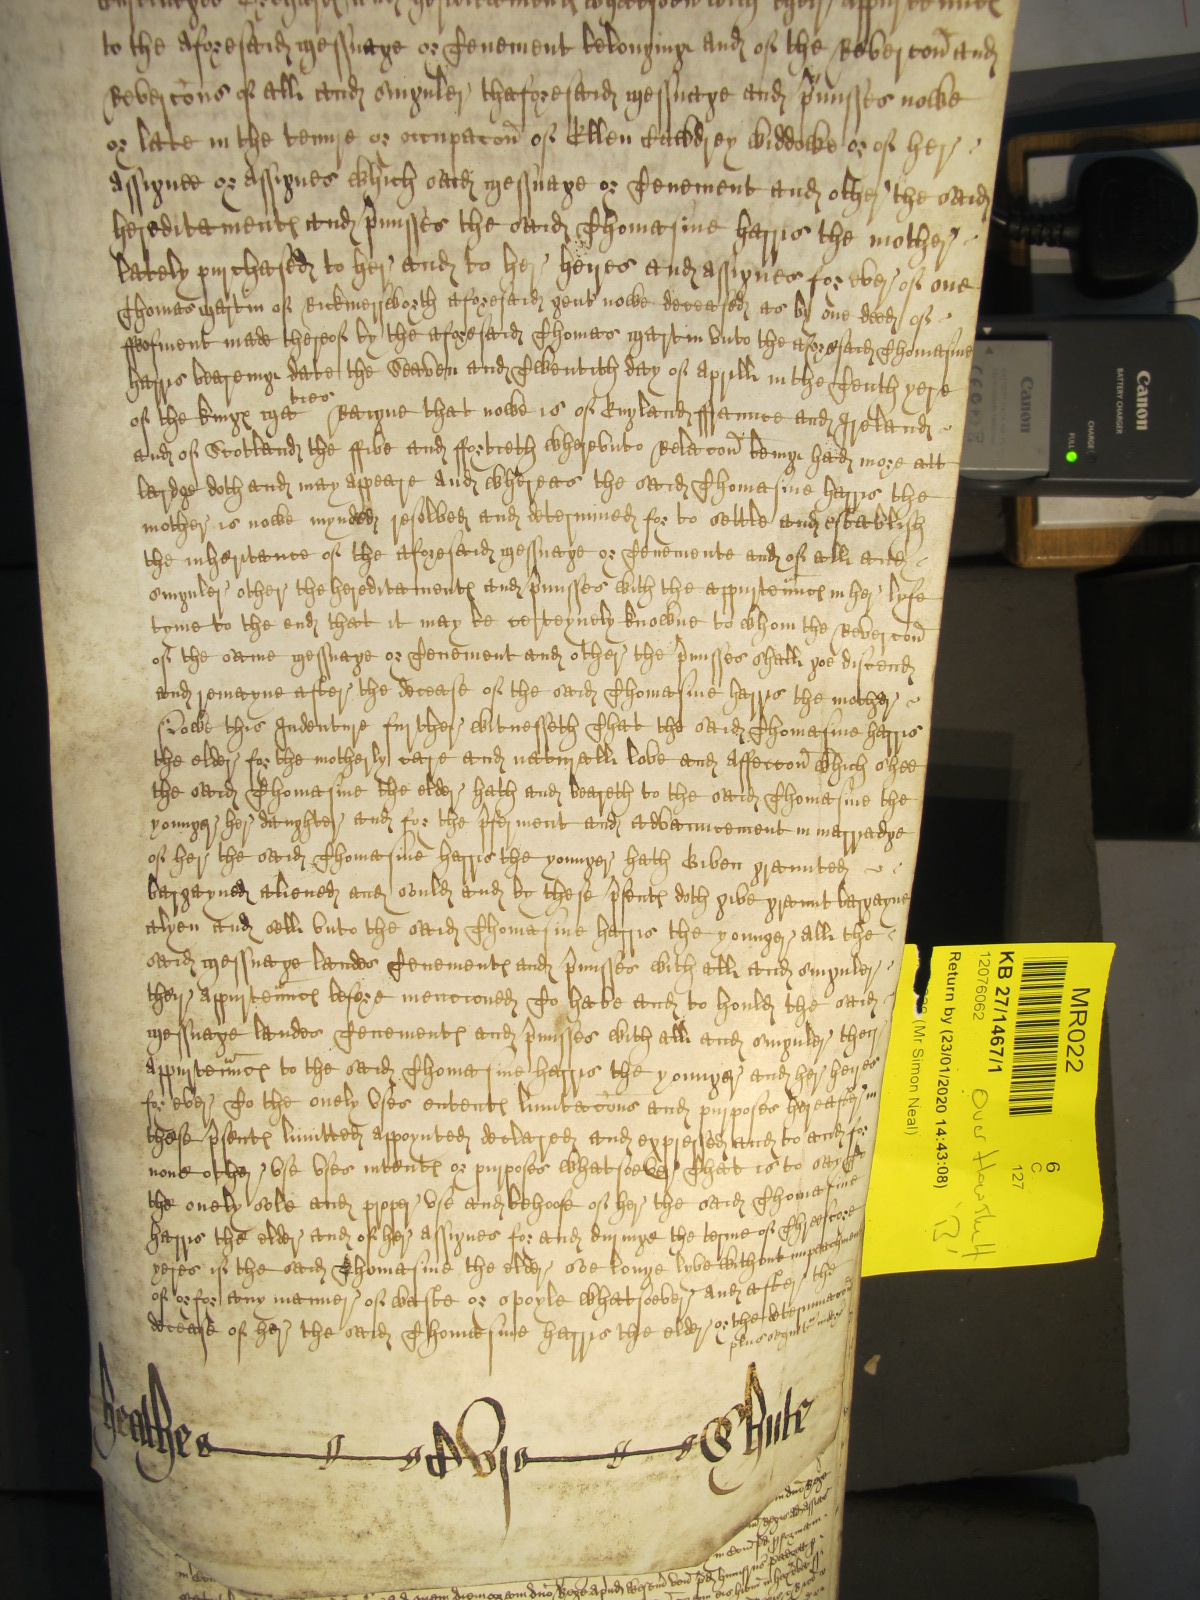 to the aforesaid messuage or Tenement belonginge and of the Revercon and
Revercons of all and singuler thaforesaid messuage and p'misses nowe
or late in the tenure or occupacon of Ellen Cawdrey widdowe or of her
Assignee or Assignes which said messuage or Tenement and other the said
hereditaments and p'misses the said Thomasine Harris the mother
lately purchased to her and to her heires and assignes for ever of one
Thomas Martin of Rickmersworth aforesaid gent nowe deceased as by one deed of
ffeofment made thereof by the aforesaid Thomas Martin unto the aforesaid Thomasine
Harris bearinge date the Seaven and Twentith day of Aprill in the Tenth yere
of the kings ma^ties Raigne that nowe is of England ffraunce and Ireland
and of Scotland the ffive and ffortieth whereunto Relacon beinge had more att
lardge doth and may appeare And whereas the said Thomasine Harris the
mother is nowe mynded resolved and determined for to settle and establish
the inheritance of the aforesaid messuage or Tenemente and of all and
singuler other the hereditaments and p'misses with the appurtennces in her lyfe
tyme to the end that it may be certeynely knowne to whom the Revercon
of the same messuage or Tenement and other the p'misses shall goe discend
and remayne after the decease of the said Thomasine Harris the mother
Nowe this Indenture further witnesseth That the said Thomasine Harris
the elder for the motherly care and naturall love and affeccon which shee
the said Thomasine the elder hath and beareth to the said Thomasine the
younger her daughter and for the p'ferment and advauncement in marradge
of her the said Thomasine Harris the younger hath Given graunted
bargayned aliened and sould and by these p'sents doth give graunt bargayne
alyen and sell unto the said Thomasine Harris the younger all the
said messuage landes Tenements and p'misses with all and singuler
their appurtennces before mencioned To have and to hould the said
messuage landes Tenements and p'misses with all and singuler their
appurtennces to the said Thomasine Harris the younger and her heires
for ever To the onely uses ententes limitacons and purposes hereafter in
these p'sents limitted appoynted declared and expressed and to and for
none other use uses intents or purposes whatsoever That is to say To
the onely sole and proper use and behoofe of her the said Thomasine
Harris the elder and of her assignes for and duringe the terme of Threescore
yeres if the said Thomasine the elder soe longe lyve without impeachment
of or for any manner of waste or spoyle whatsoever And after the
decease of her the said Thomasine Harris the elder or the determinacon
Heathe
Chute
Canon
BATTERY CHARGER
CHARGE
FULL
Canon
MR022
6
C
127
KB 27/1467/1
12076062
Return by (23/01/2020 14:43:08)
(Mr Simon Neal)